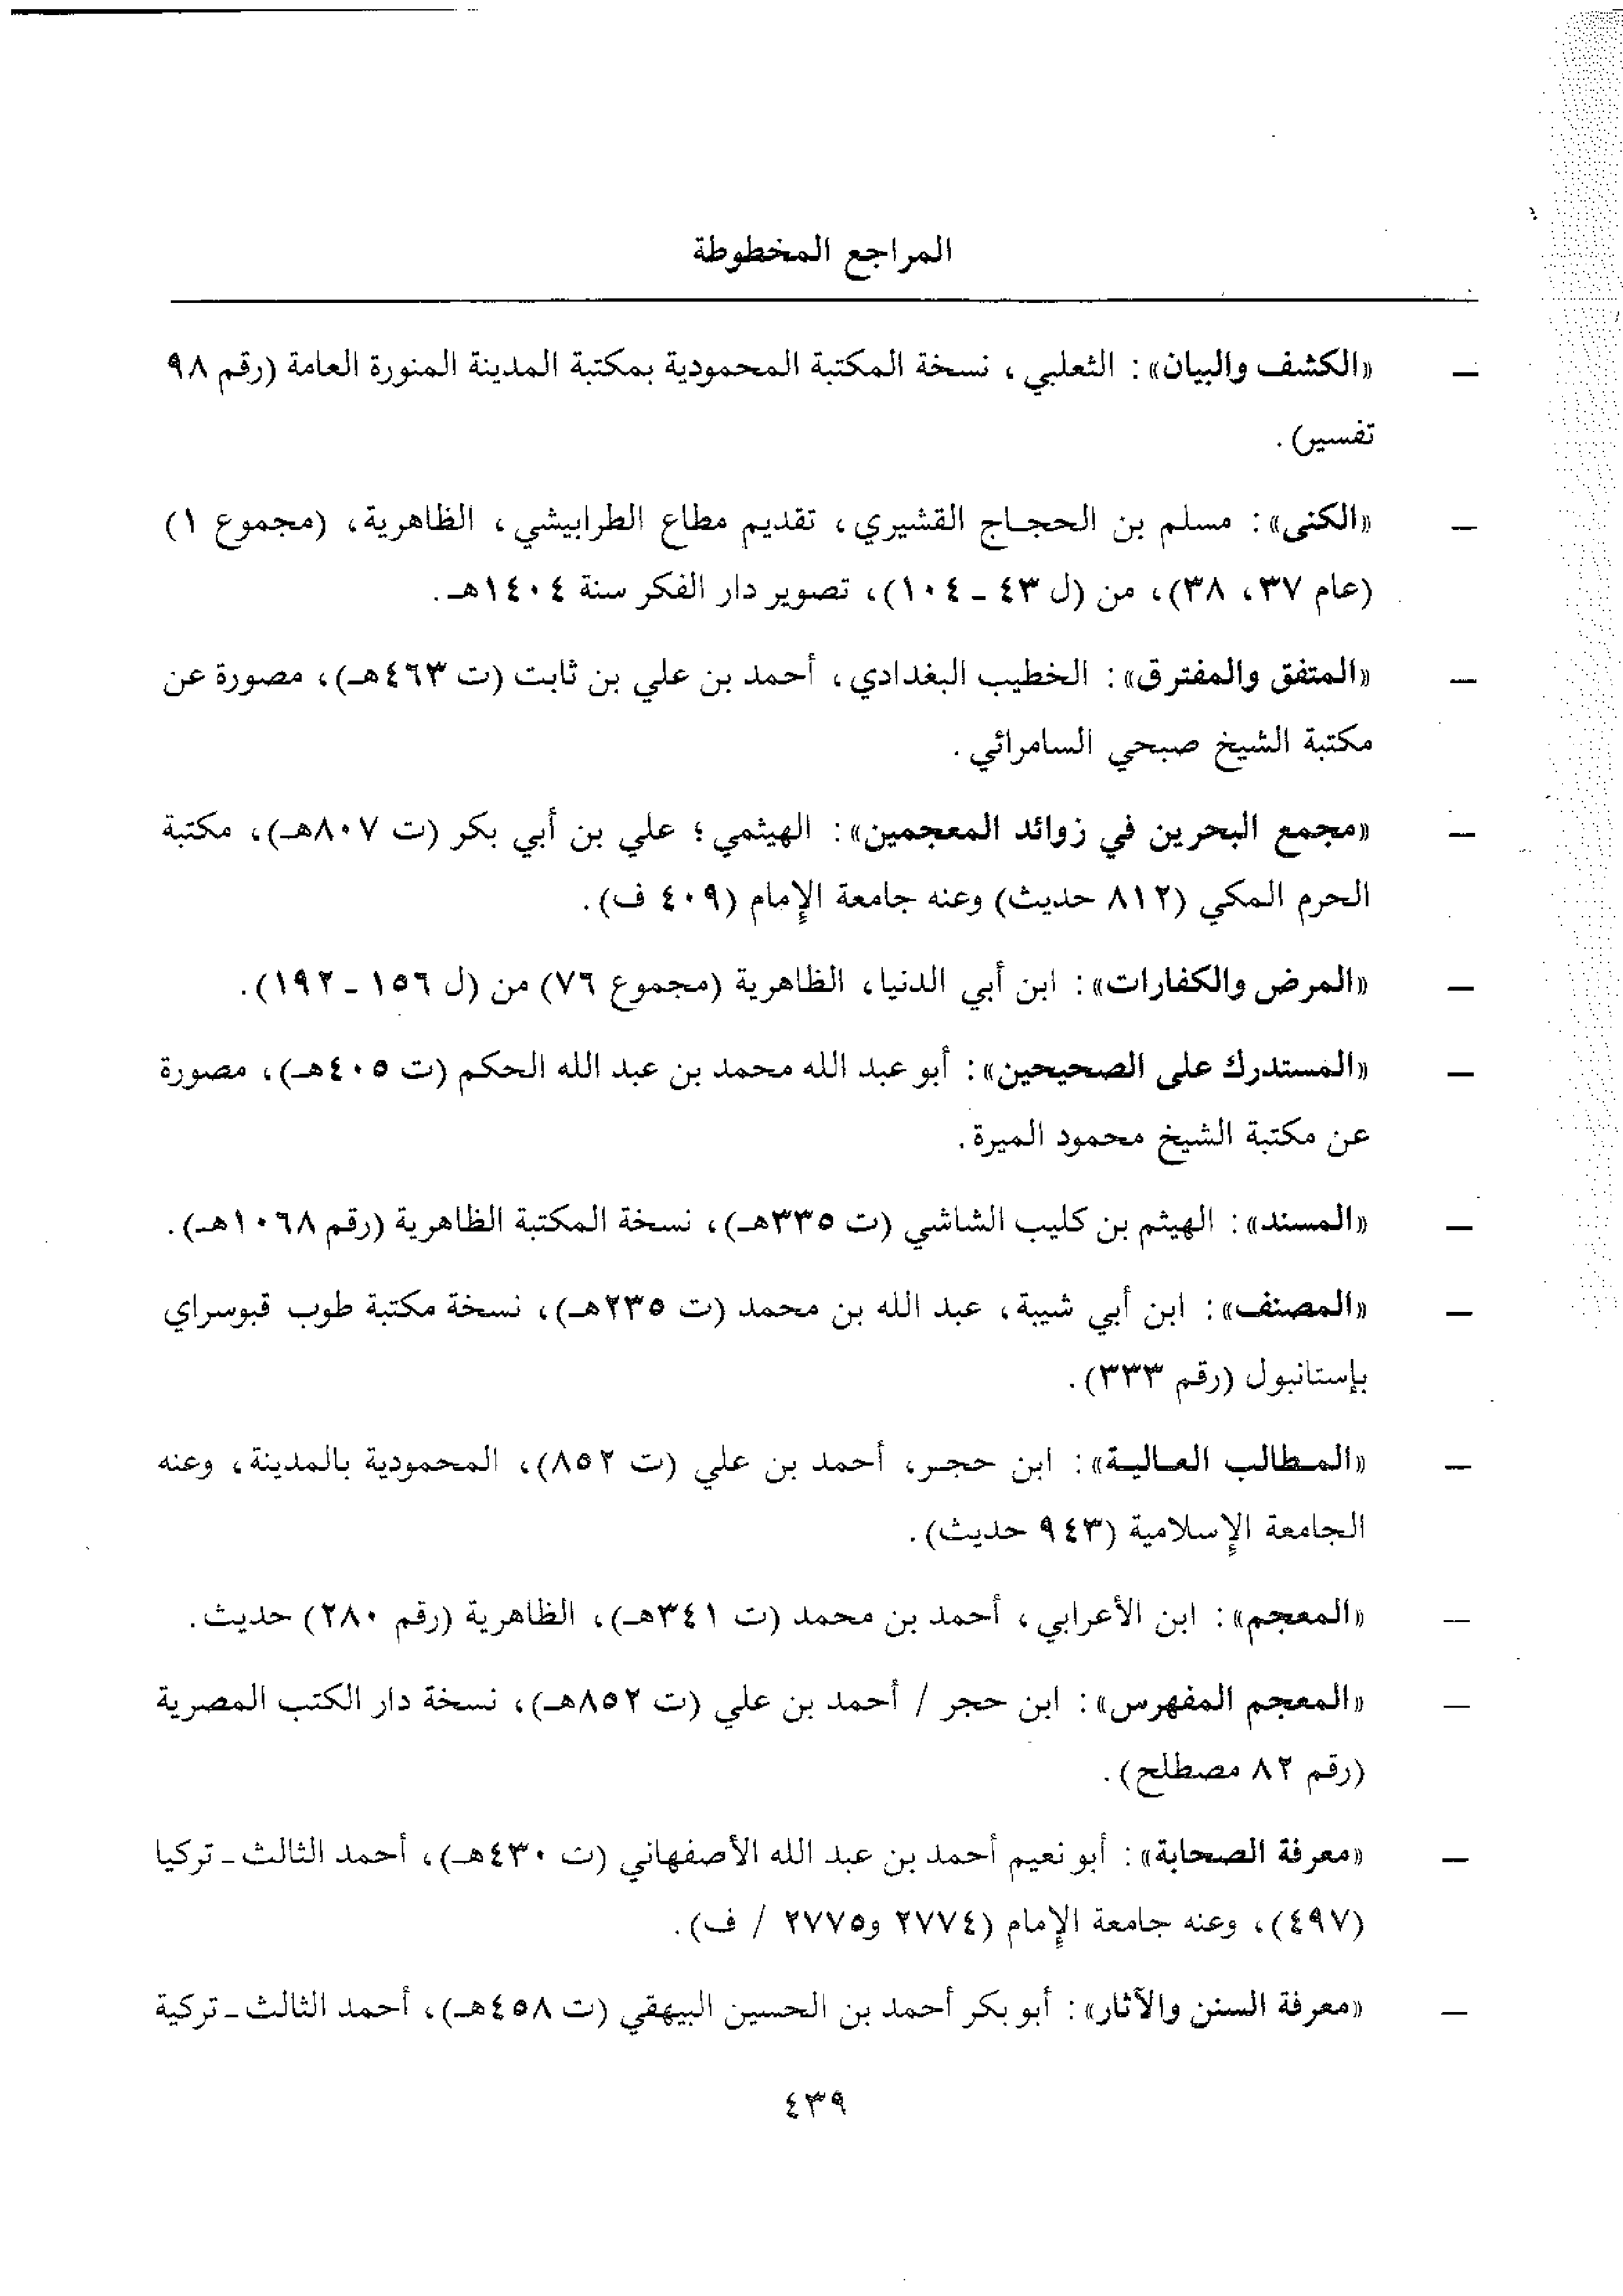 المراجع المخطوطة
— «الكشف والبيان»: الثعلبي، نسخة المكتبة المحمودية بمكتبة المدينة المنورة العامة (رقم ٩٨
تفسير).
— «الكنى»: مسلم بن الحجاج القشيري، تقديم مطاع الطرابيشي، الظاهرية، (مجموع ١)
(عام ٣٧، ٣٨)، من (ل ٤٣ - ١٠٤)، تصوير دار الفكر سنة ١٤٠٤هـ.
— «المتفق والمفترق»: الخطيب البغدادي، أحمد بن علي بن ثابت (ت ٤٦٣هـ)، مصورة عن
مكتبة الشيخ صبحي السامرائي.
— «مجمع البحرين في زوائد المعجمين»: الهيثمي؛ علي بن أبي بكر (ت ٨٠٧هـ)، مكتبة
الحرم المكي (٨١٢ حديث) وعنه جامعة الإمام (٤٠٩ ف).
— «المرض والكفارات»: ابن أبي الدنيا، الظاهرية (مجموع ٧٦) من (ل ١٥٦ - ١٩٢).
— «المستدرك على الصحيحين»: أبو عبد الله محمد بن عبد الله الحكم (ت ٤٠٥هـ)، مصورة
عن مكتبة الشيخ محمود الميرة.
— «المسند»: الهيثم بن كليب الشاشي (ت ٣٣٥هـ)، نسخة المكتبة الظاهرية (رقم ١٠٦٨هـ).
— «المصنف»: ابن أبي شيبة، عبد الله بن محمد (ت ٢٣٥هـ)، نسخة مكتبة طوب قبوسراي
بإستانبول (رقم ٣٣٣).
— «المطالب العالية»: ابن حجر، أحمد بن علي (ت ٨٥٢)، المحمودية بالمدينة، وعنه
الجامعة الإسلامية (٩٤٣ حديث).
— «المعجم»: ابن الأعرابي، أحمد بن محمد (ت ٣٤١هـ)، الظاهرية (رقم ٢٨٠) حديث.
— «المعجم المفهرس»: ابن حجر / أحمد بن علي (ت ٨٥٢هـ)، نسخة دار الكتب المصرية
(رقم ٨٢ مصطلح).
— «معرفة الصحابة»: أبو نعيم أحمد بن عبد الله الأصفهاني (ت ٤٣٠هـ)، أحمد الثالث - تركيا
(٤٩٧)، وعنه جامعة الإمام (٢٧٧٤ و٢٧٧٥ / ف).
— «معرفة السنن والآثار»: أبو بكر أحمد بن الحسين البيهقي (ت ٤٥٨هـ)، أحمد الثالث - تركية
٤٣٩